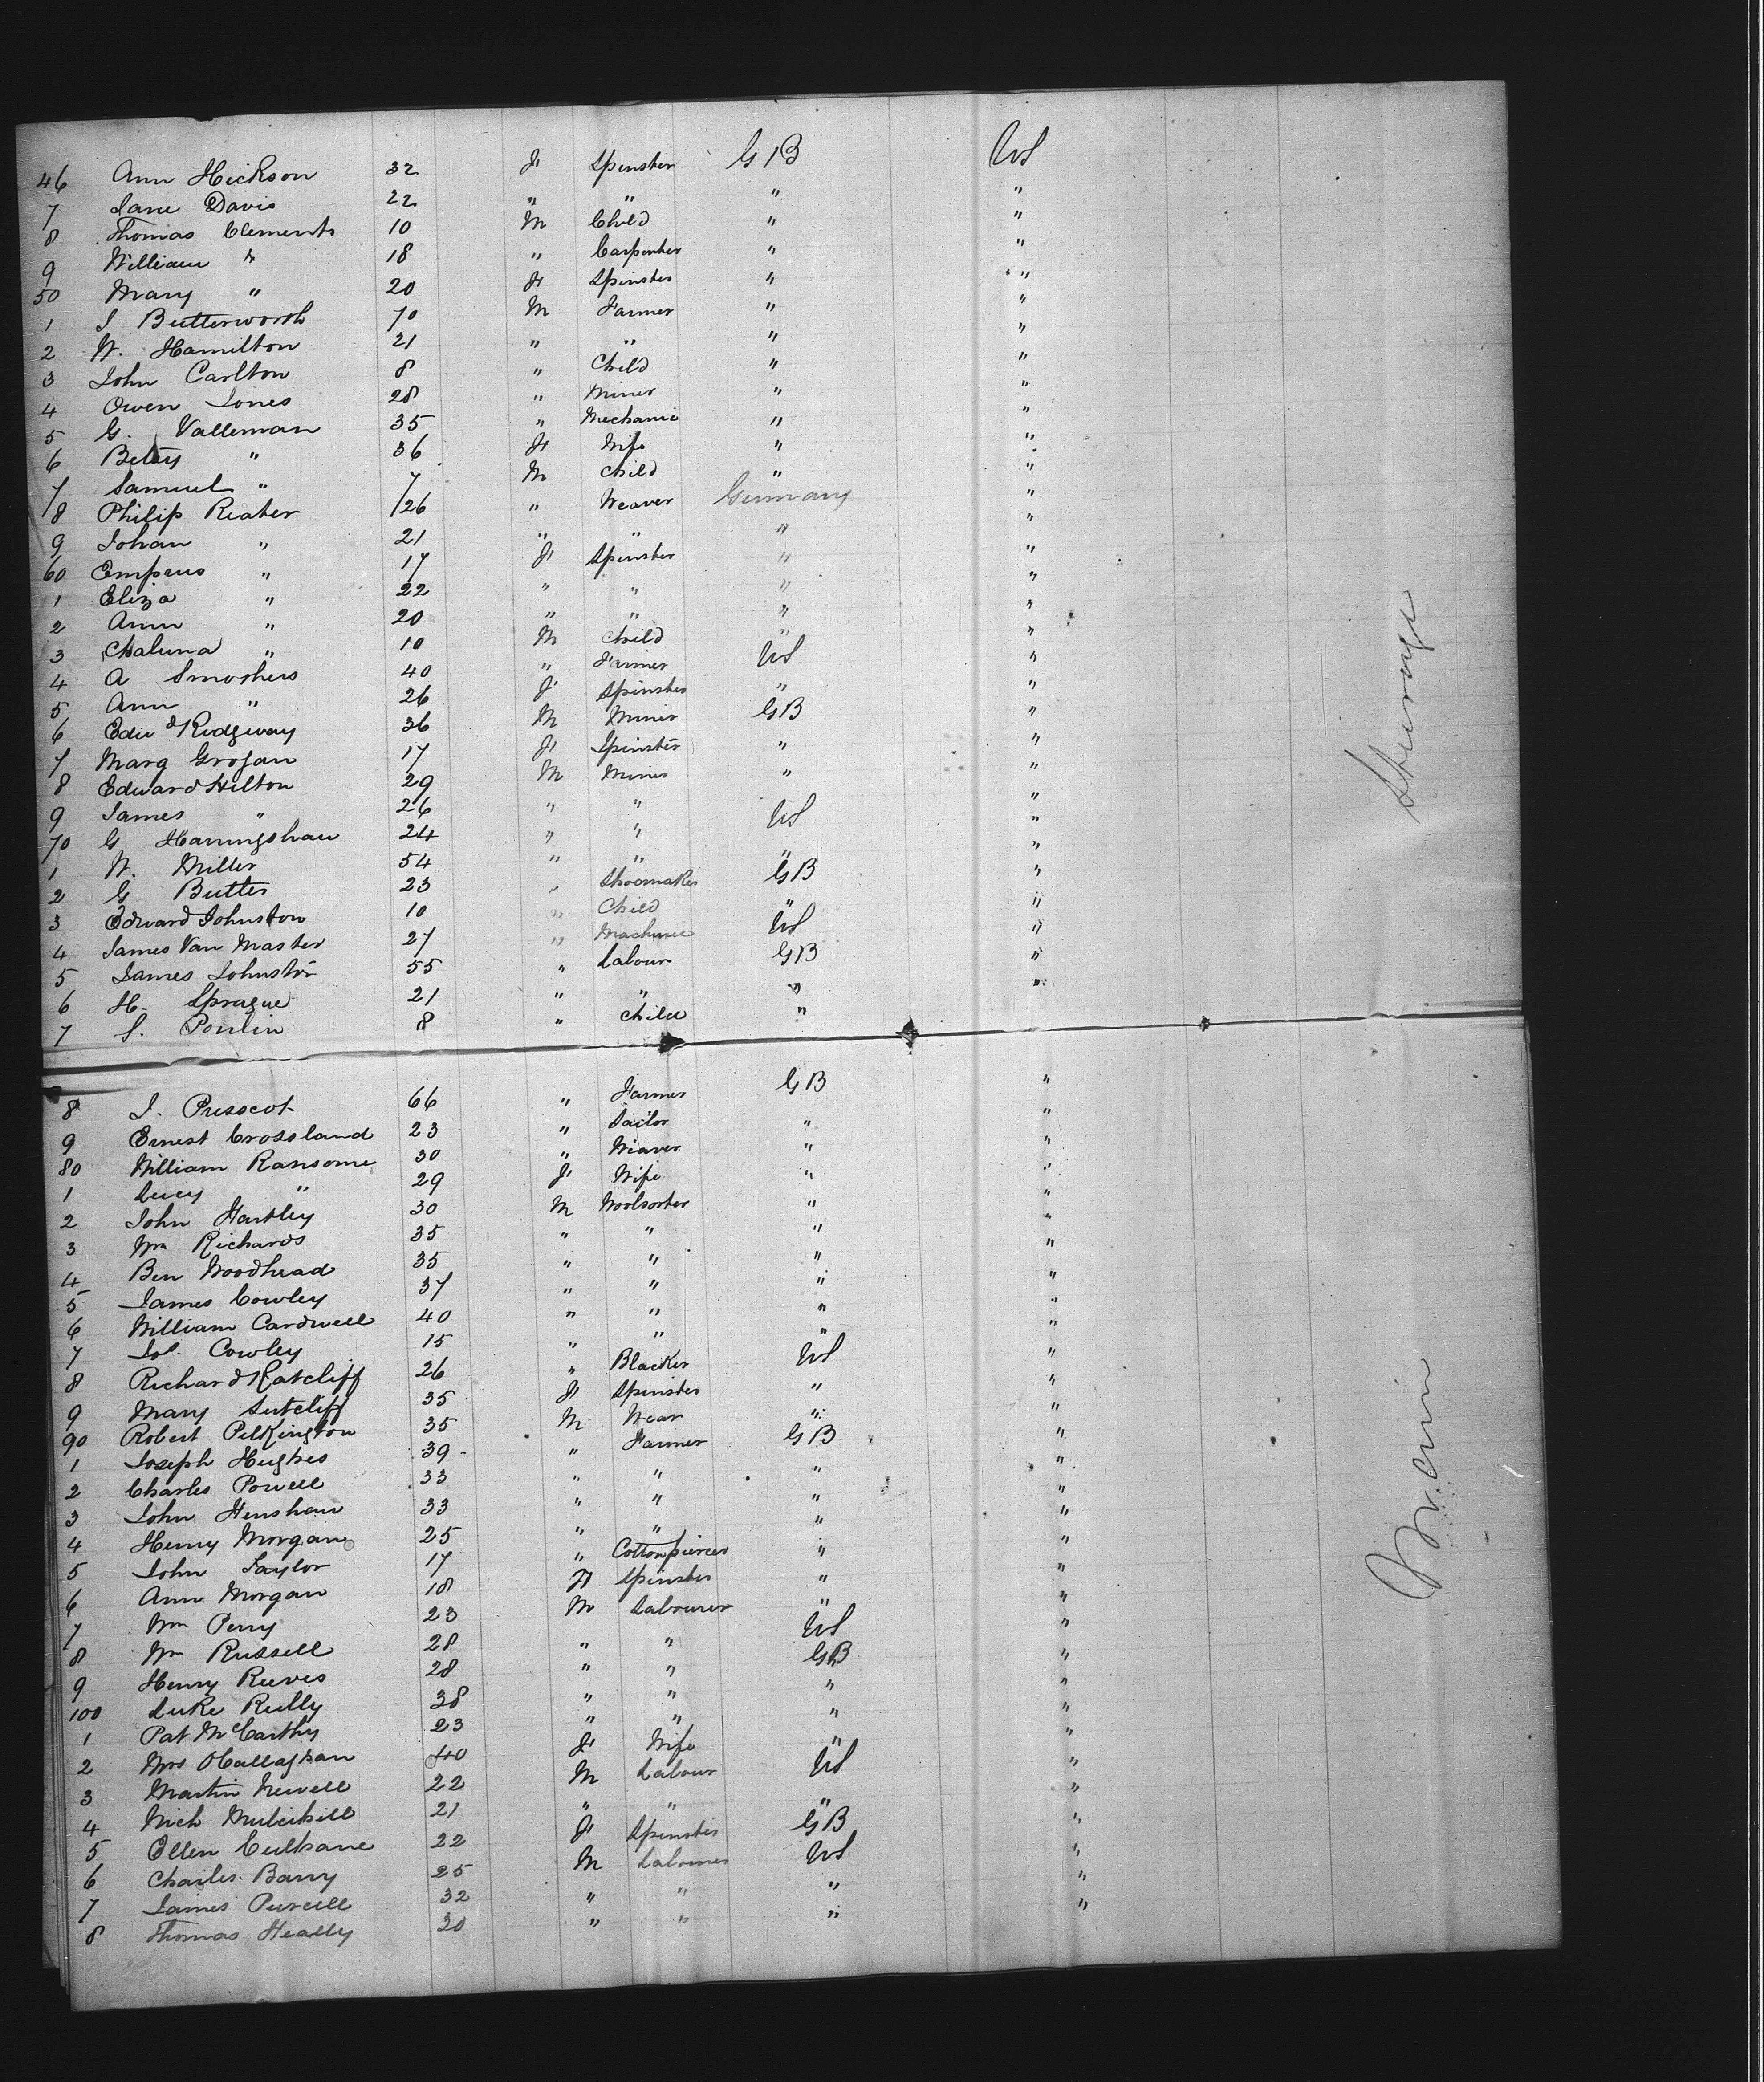 46 Ann Hickson 32 F Spinster GB US
7 Jane Davis 22 " " " "
8 Thomas Clements 10 M Child " "
9 William " 18 " Carpenter " "
50 Mary " 20 F Spinster " "
1 J Butterworth 70 M Farmer " "
2 W. Hamilton 21 " " " "
3 John Carlton 8 " Child " "
4 Owen Jones 28 " Miner " "
5 G. Valleman 35 " Mechanic " "
6 Betsy " 36 F Wife " "
7 Samuel " 7 M Child " "
8 Philip Reater 26 " Weaver Germany "
9 Johan " 21 " " " "
60 " 17 F Spinster " "
1 Eliza " 22 " " " "
2 Ann " 20 " " " "
3 " 10 M Child " "
4 A Smothers 40 " Farmer US "
5 Ann " 26 F Spinster " "
6 Edwd Ridgway 36 M Miner GB "
7 Marg Grogan 17 F Spinster " "
8 Edward Hilton 29 M Miner " "
9 James " 26 " " " "
70 G Harringshaw 24 " " US "
1 W. Miller 54 " " " "
2 G Butler 23 " Shoemaker GB "
3 Edward Johnston 10 " Child " "
4 James Van Master 27 " Machinie US "
5 James Johnston 55 " Labour GB "
6 H. Sprague 21 " " " "
7 S. Poulin 8 " Child "
8 J. Presscot 66 " Farmer GB "
9 Ernest Crossland 23 " Tailor " "
80 William Ransome 30 " Weaver " "
1 Lucy " 29 F Wife " "
2 John Hartley 30 M Woolsorter " "
3 Wm Richards 35 " " " "
4 Ben Woodhead 35 " " " "
5 James Cowley 37 " " " "
6 William Cardwell 40 " " " "
7 Jos. Cowley 15 " " " "
8 Richard Ratcliff 26 " Blacker US "
9 Mary Sutcliff 35 F Spinster " "
90 Robert Pilkington 35 M Wear " "
1 Joseph Hughes 39 " Farmer GB "
2 Charles Powell 33 " " " "
3 John Henshaw 33 " " " "
4 Henry Morgan 25 " " " "
5 John Taylor 17 " Cottonpiercer " "
6 Ann Morgan 18 F Spinster " "
7 Wm Perry 23 M Labourer " "
8 Wm Russell 28 " " US "
9 Henry Reeves 28 " " GB "
100 Luke Reilly 38 " " " "
1 Pat McCarthy 23 " " " "
2 Mrs OCallaghan 40 F Wife " "
3 Martin Newell 22 M Labour US "
4 Mich 21 " " " "
5 Ellen Culhane 22 F Spinster GB "
6 Charles Barry 25 M Labourer US "
7 James Purcell 32 " " " "
8 Thomas Heally 30 " " " "
Steerage